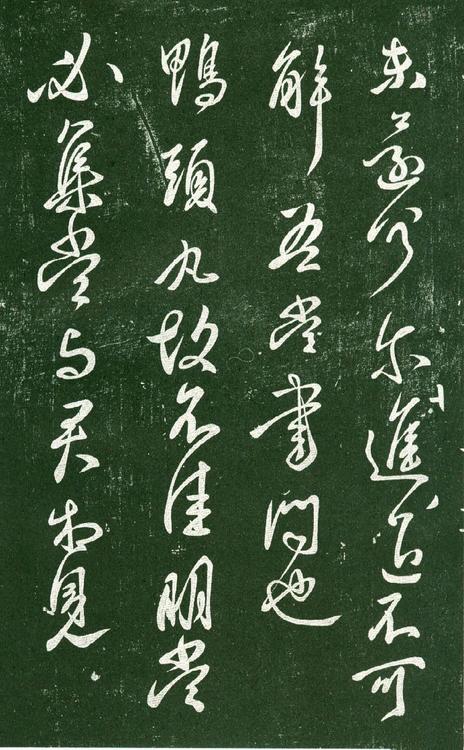 未分尔進退不可
解吾當書問也
鴨頭丸故不佳明當
必集當与君相見